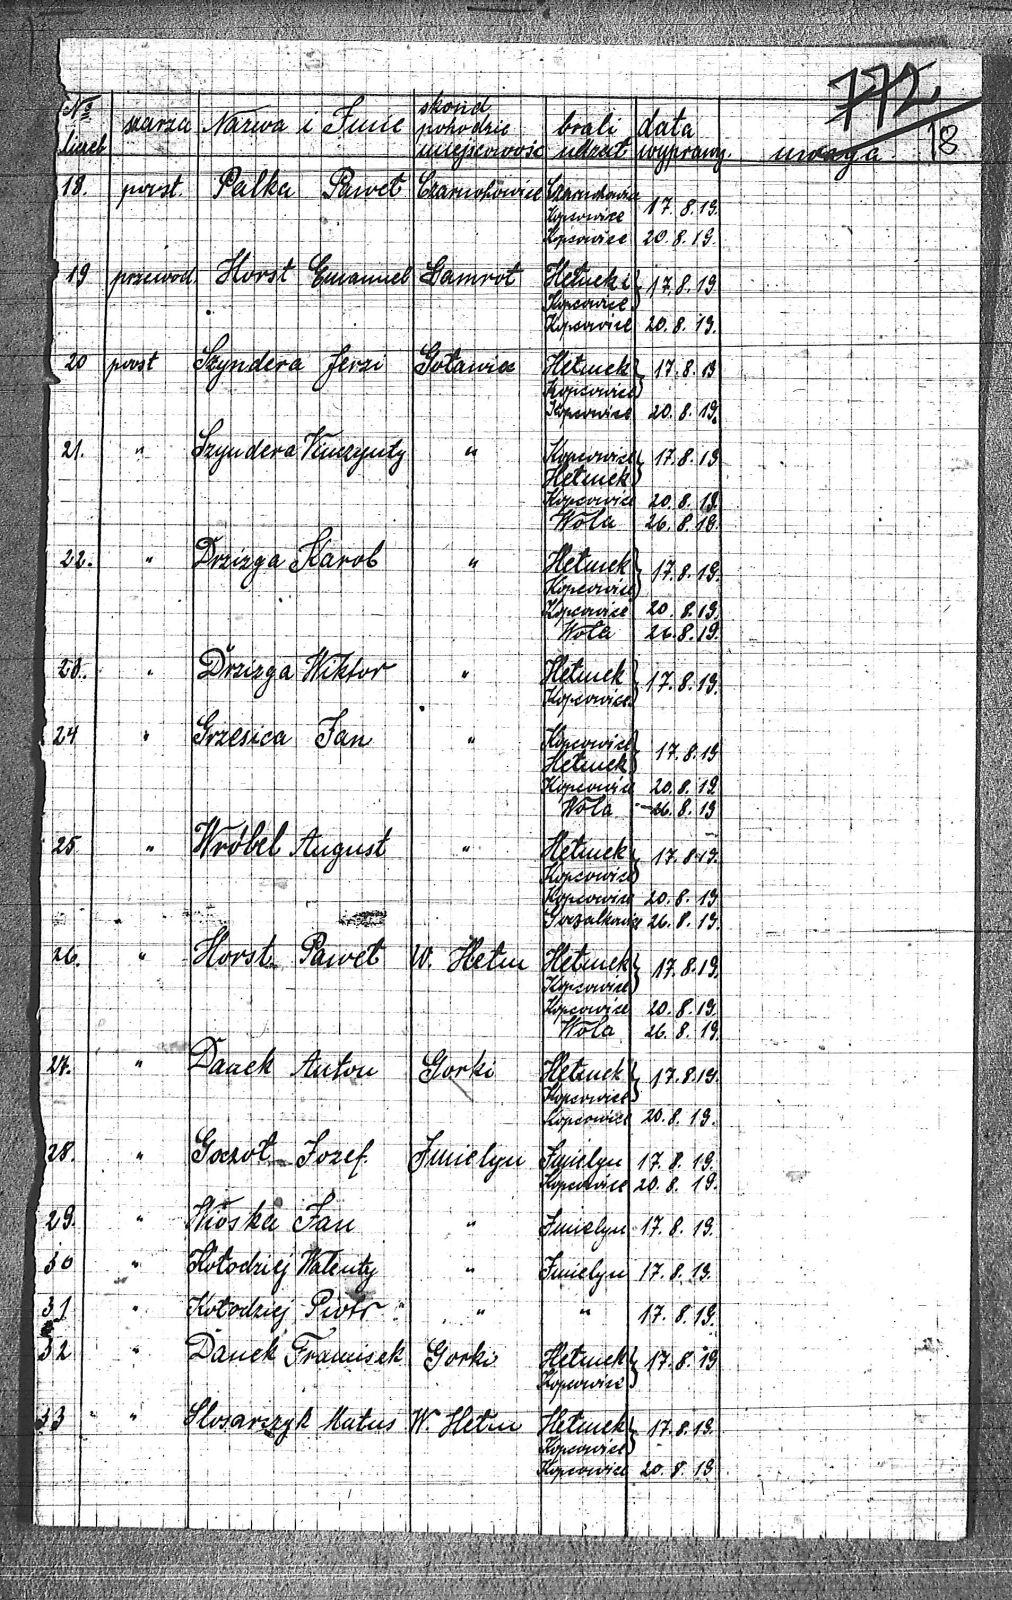 772
18
No liczb szarza Nazwa i Imie skond pohodzie miejscowość brali udzał data wyprawy. uwaga.
18. powst. Palka Paweł Czarnuhowice
Kopcowice 17.8.19.
Kopcowice 20.8.19.
19 przewod. Horst Emanuel Gamrot Hetmek
Kopcowice } 17.8.19
Kopcowice 20.8.19.
20 powst Szyndera Jerzi Goławice Hetmek
Kopcowice } 17.8.19
Kopcowice 20.8.19.
21. " Szyndera Winczynty " Kopcowice
Hetmek } 17.8.19
Kopcowice 20.8.19.
Wola 26.8.19.
22. " Drzizga Karol " Hetmek
Kopcowice } 17.8.19.
Kopcowice 20.8.19.
Wola 26.8.19.
23. " Drzizga Wiktor " Hetmek
Kopcowice } 17.8.19.
24 " Grzesica Jan " Kopcowice
Hetmek } 17.8.19
Kopcowice 20.8.19.
Wola 26.8.19
25 " Wróbel August " Hetmek
Kopcowice } 17.8.19.
Kopcowice 20.8.19
Goczalkowice 26.8.19.
26. " Horst Paweł W. Hełm Hetmek
Kopcowice } 17.8.19.
Kopcowice 20.8.19.
Wola 26.8.19.
27. " Danek Anton Gorki Hetmek
Kopcowice } 17.8.19.
Kopcowice 20.8.19.
28. " Jozef Jmielyn Jmielyn 17.8.19.
Kopcowice 20.8.19.
29. " Wioska Jan " Jmielyn 17.8.19.
30 " Kołodziej Walenty " Jmielyn 17.8.19.
31 " Kołodziej Piotr " " 17.8.19.
32 " Danek Francisek Gorki Hetmek
Kopcowice } 17.8.19
33 " Slosarczyk Matus W. Hełm Hetmek
Kopcowice } 17.8.19.
Kopcowice 20.8.19.